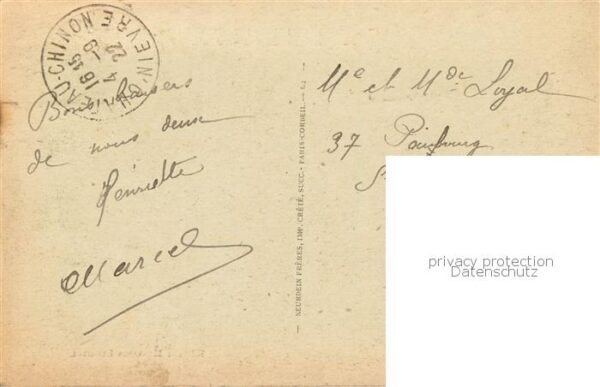 NIÈVRE
16 15
4-9
22
Bons baisers
de nous deux
Henriette
Marcel
NEURDEIN FRÈRES, IMP. CRÉTÉ, SUCC. - PARIS-CORBEIL
Me et Mde Loyal
37
privacy protection
Datenschutz